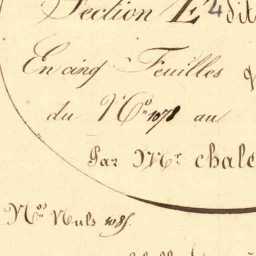 Section E 4 dit
En cinq Feuilles
du N.° 1078 au
Par Mr. chale
N.os Nuls 1085.